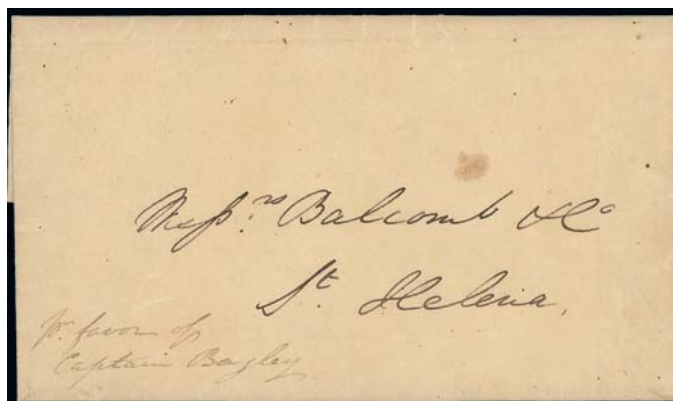 Messrs. Balcomb & Co
St. Helena.
pr. favor of
Captain Bagley